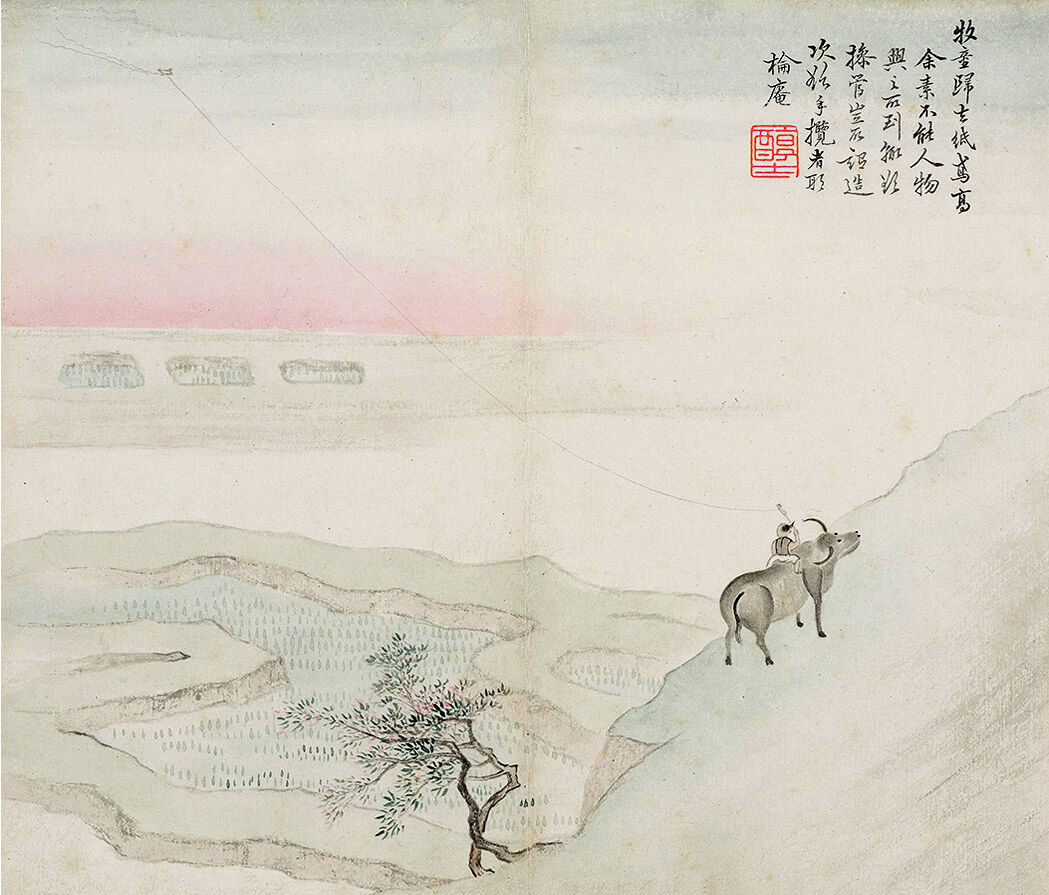 牧童歸去紙鳶高
余素不能人物
興之所到輒欲
操管豈所謂造
次於手攬者耶
榆庵
醇士